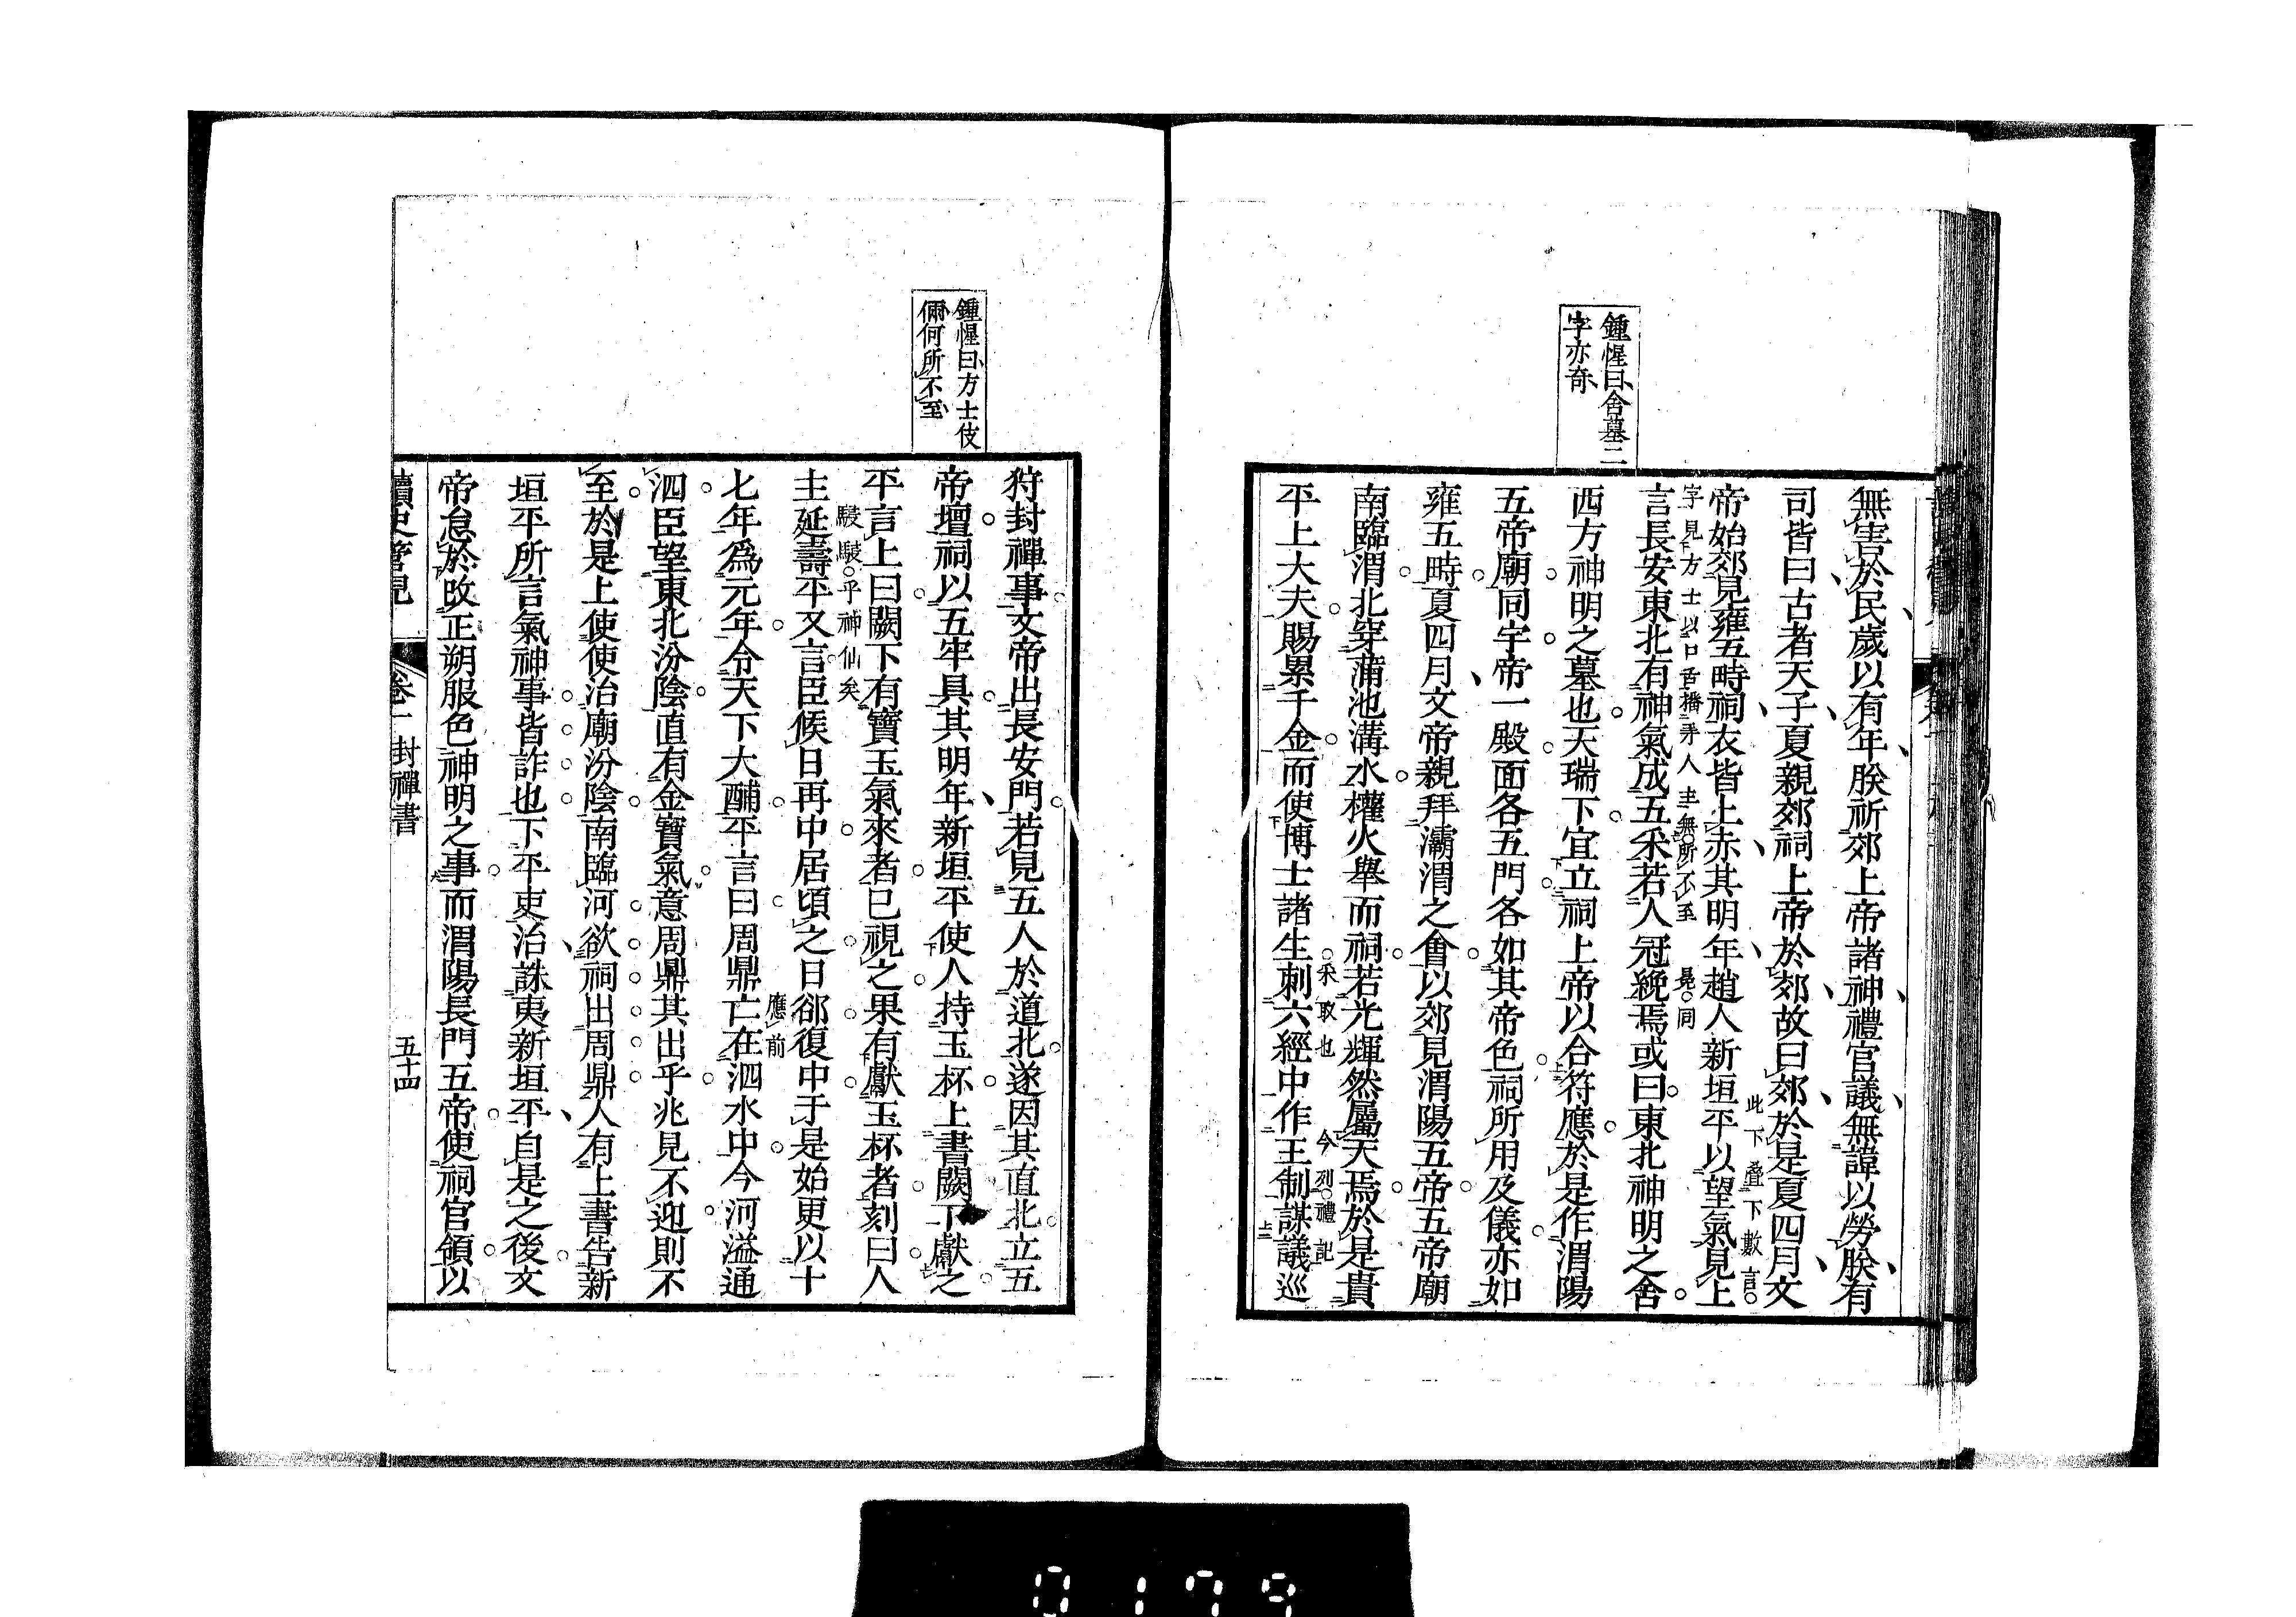 鍾惺曰舍墓二
字亦奇
無害於民歲以有年朕祈郊上帝諸神禮官議無諱以勞朕有
司皆曰古者天子夏親郊祠上帝於郊故曰郊於是夏四月文
此下疊下數言
帝始郊見雍五畤祠衣皆上赤其明年趙人新垣平以望氣見上
字見方士以口舌播弄人主無所不至
晃同
言長安東北有神氣成五采若人冠絻焉或曰東北神明之舍
西方神明之墓也天瑞下宜立祠上帝以合符應於是作渭陽
五帝廟同宇帝一殿面各五門各如其帝色祠所用及儀亦如
雍五畤夏四月文帝親拜灞渭之會以郊見渭陽五帝五帝廟
南臨渭北穿蒲池溝水權火舉而祠若光輝然屬天焉於是貴
采取也
今列禮記
平上大夫賜累千金而使博士諸生刺六經中作王制謀議巡
鍾惺曰方士伎
倆何所不至
狩封禪事文帝出長安門若見五人於道北遂因其直北立五
帝壇祠以五牢具其明年新垣平使人持玉杯上書闕下獻之
平言上曰闕下有寶玉氣來者已視之果有獻玉杯者刻曰人
駸駸乎神仙矣
主延壽平又言臣候日再中居頃之日郤復中于是始更以十
應前
七年爲元年令天下大酺平言曰周鼎亡在泗水中今河溢通
泗臣望東北汾陰直有金寶氣意周鼎其出乎兆見不迎則不
至於是上使使治廟汾陰南臨河欲祠出周鼎人有上書告新
垣平所言氣神事皆詐也下平吏治誅夷新垣平自是之後文
帝怠於改正朔服色神明之事而渭陽長門五帝使祠官領以
讀史管見
卷一
封禪書
五十四
0179